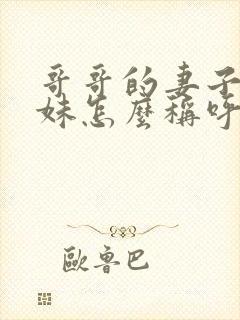 哥哥的妻子
妹怎麼稱呼
歐魯巴